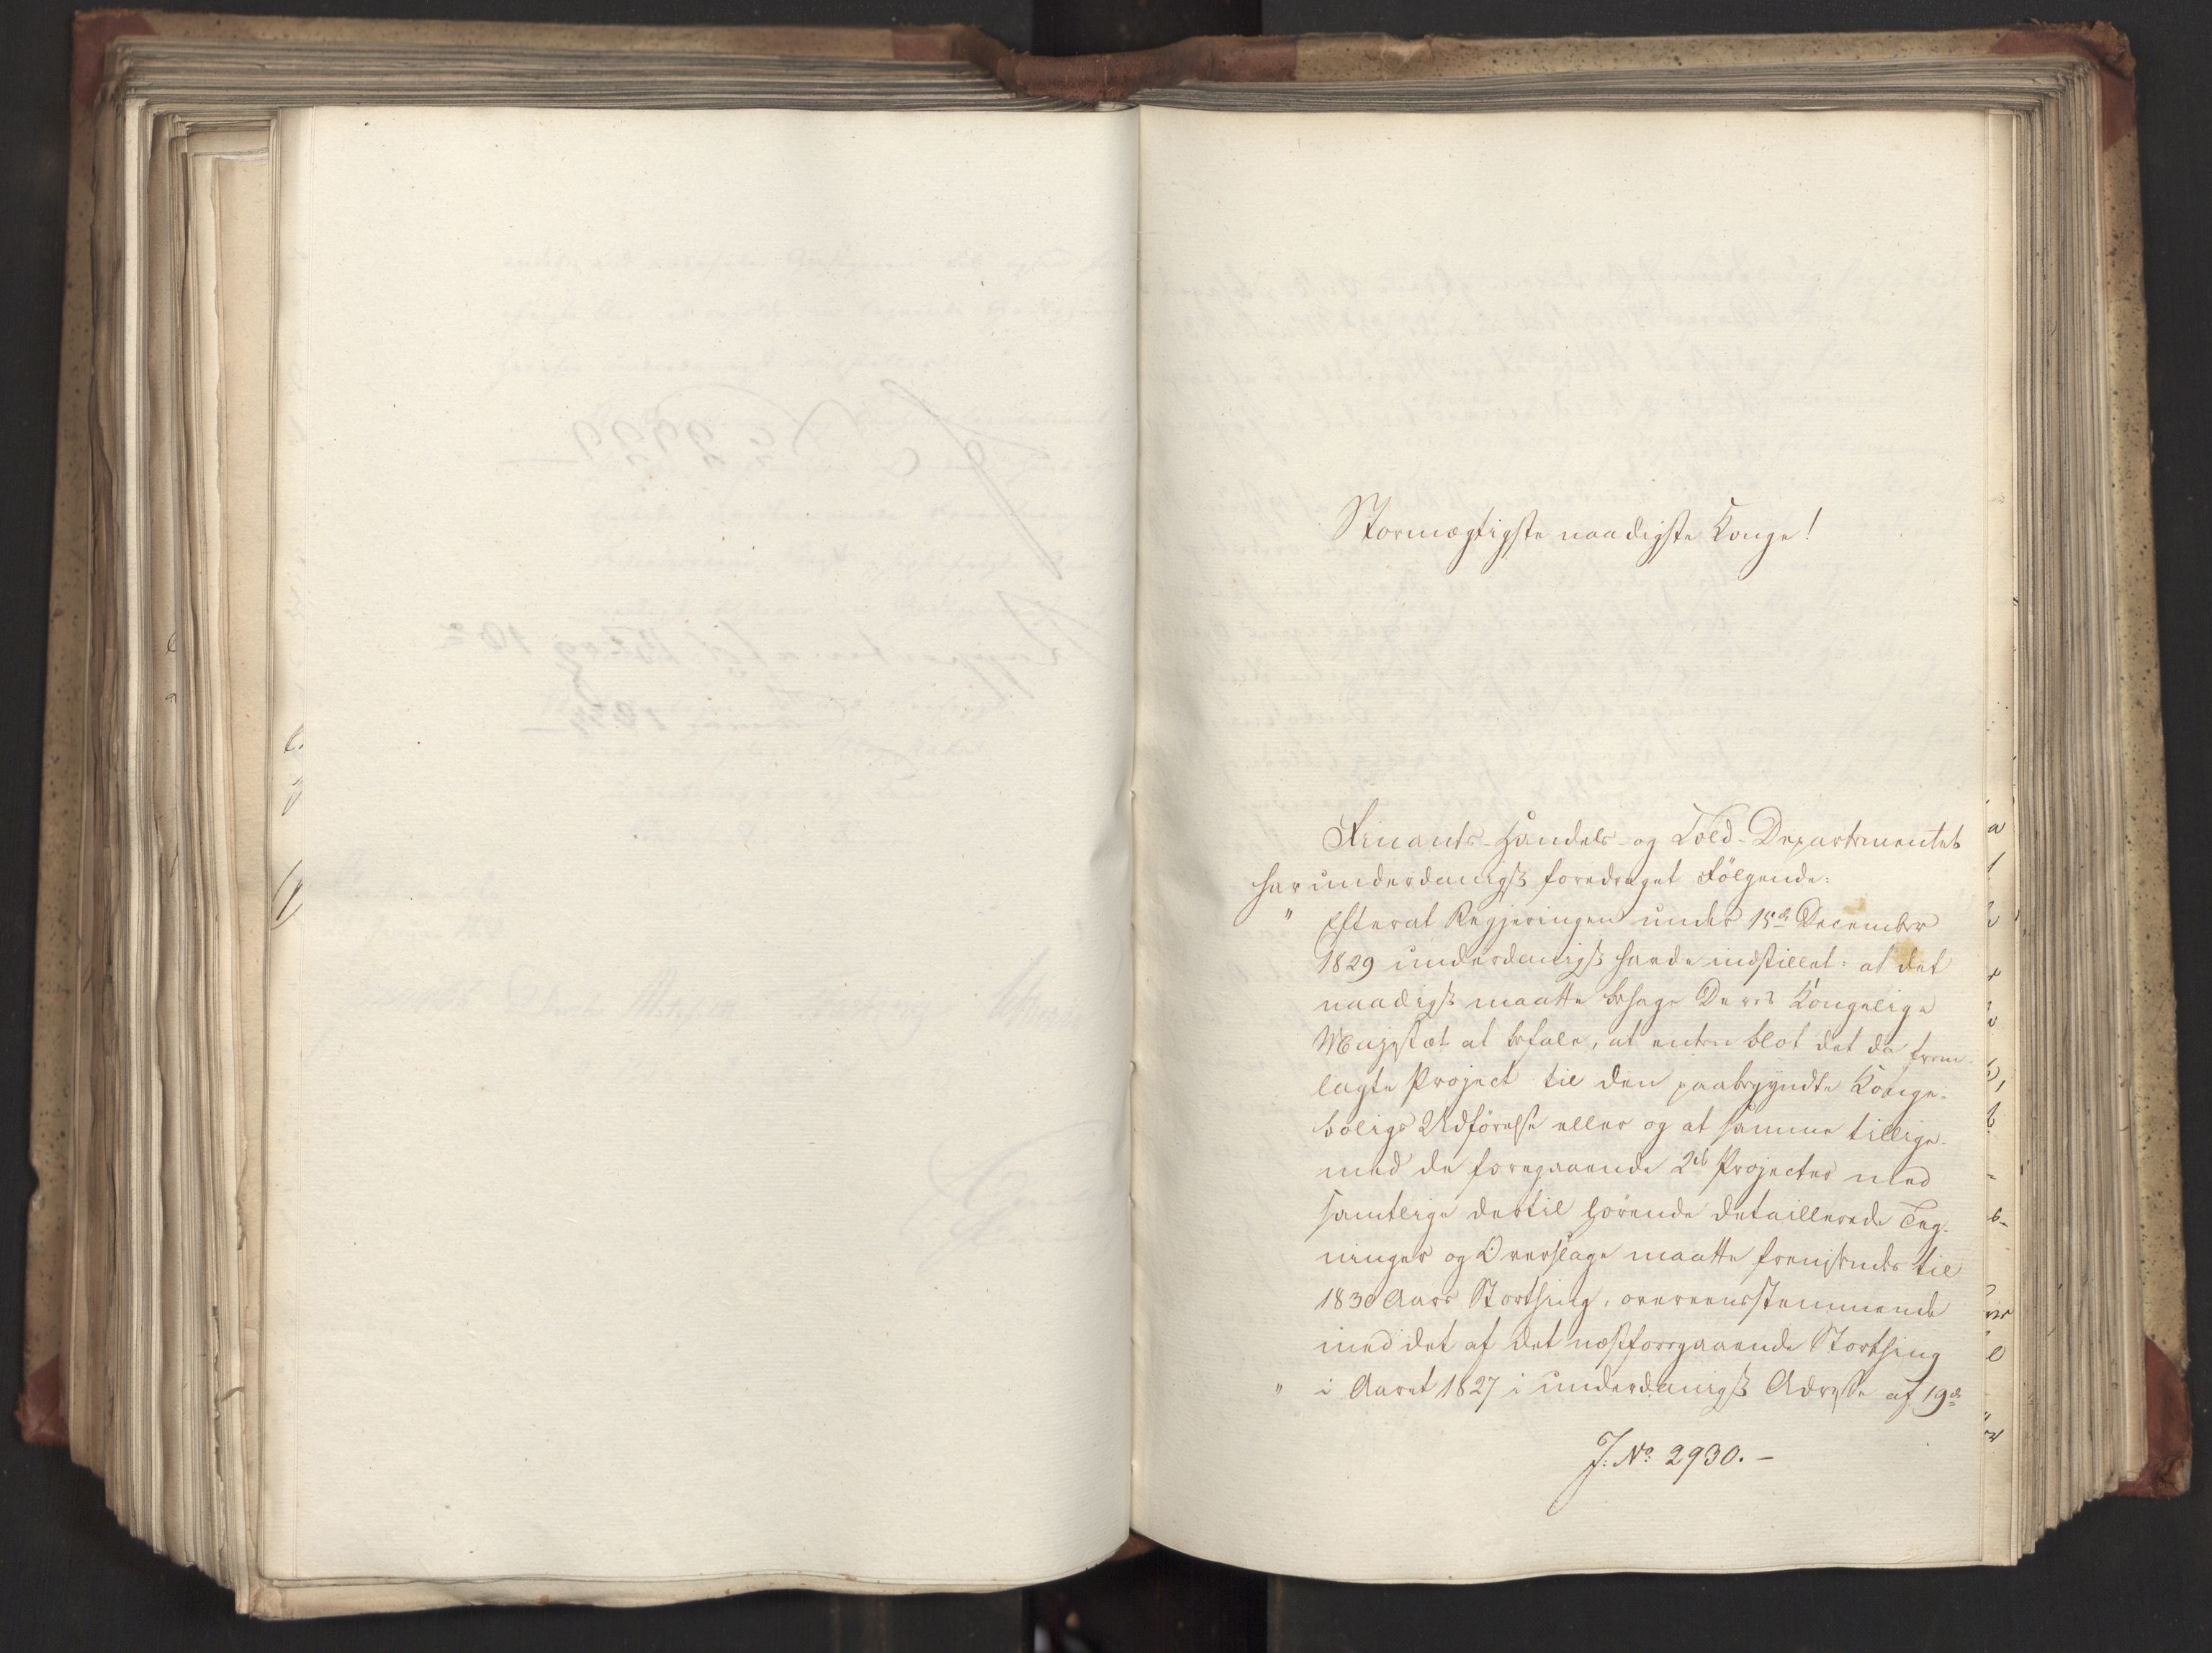 Stormægtigste naadigste Konge!
Finants- Handels- og Told-Departmentet
har underdanigst foredraget Følgende:
" Efterat Regjeringen under 15de December
1829 underdanigst havde indstillet: at det
naadigst maatte behage Deres Kongelige
Majestæt at befale, at enten blot det da frem-
lagte Project til den paabegyndte Konge-
boligs Udførelse eller og at samme tillige-
med de foregaaende 2de Projecter med
samtlige dertil hørende detaillerede Teg-
ninger og Overslage maatte fremsendes til
1830 Aars Storthing, overeensstemmende
med det af det næstforegaaende Storthing
" i Aaret 1827 i underdanigst Adresse af 19de
J: No: 2930. –